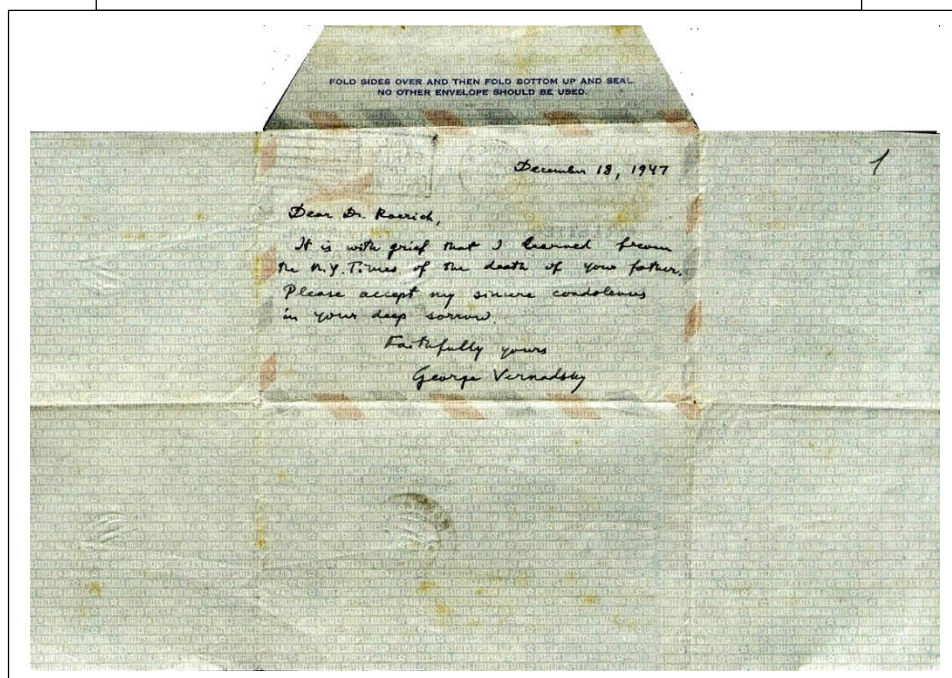 FOLD SIDES OVER AND THEN FOLD BOTTOM UP AND SEAL.
NO OTHER ENVELOPE SHOULD BE USED.
December 18, 1947
1
Dear Dr. Roerich,
It is with grief that I learned from
the N.Y. Times of the death of your father.
Please accept my sincere condolences
in your deep sorrow.
Faithfully yours
George Vernadsky